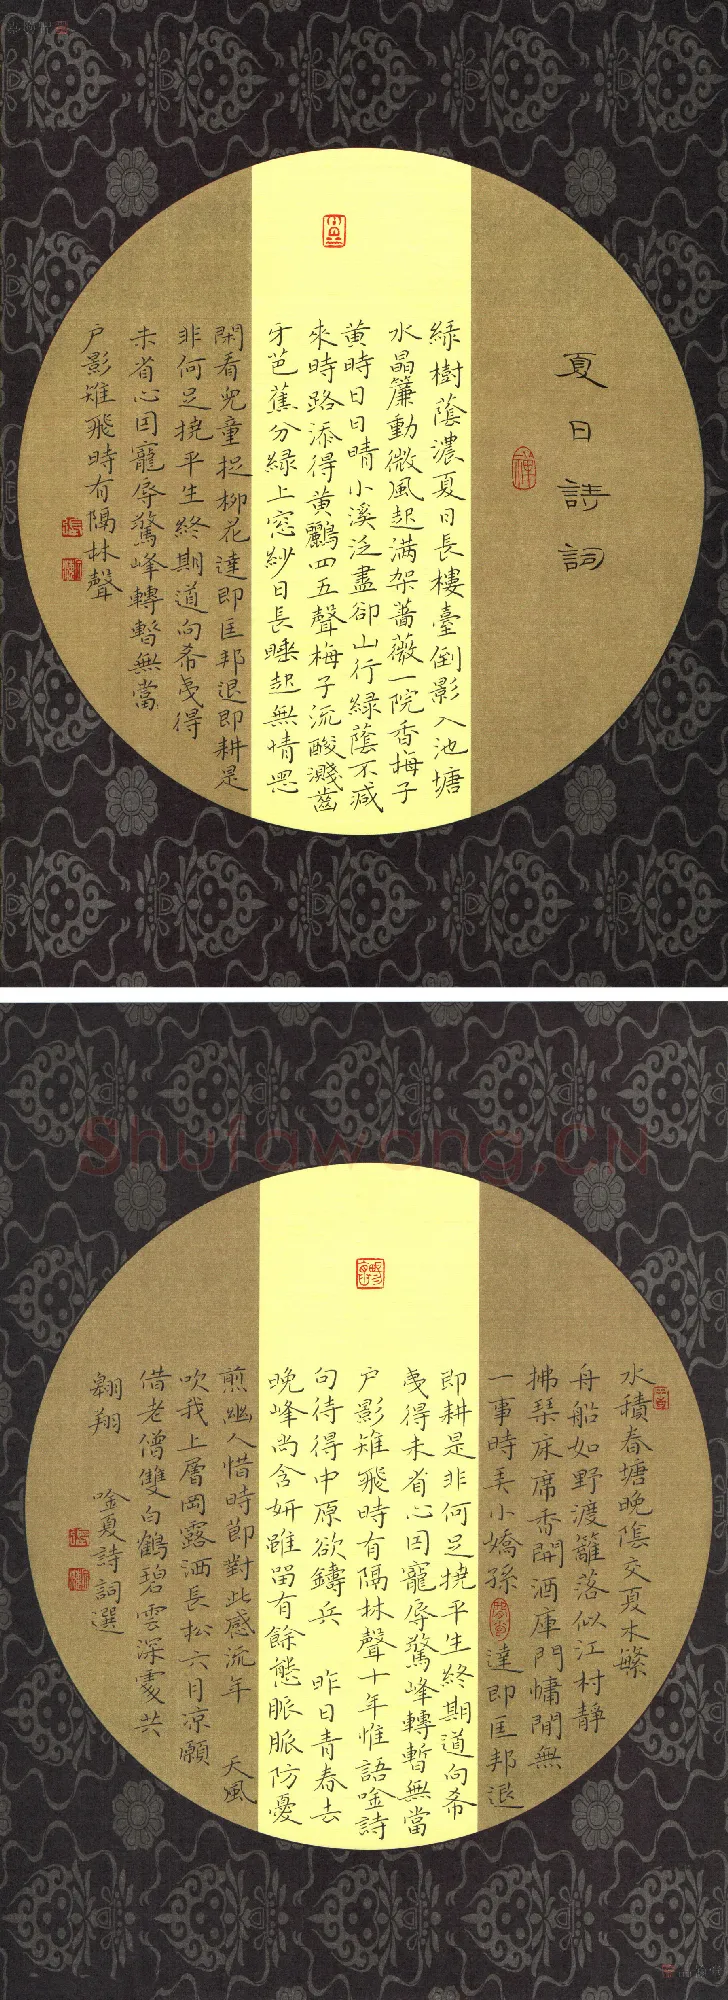 夏日詩詞
綠樹蔭濃夏日長樓臺倒影入池塘
水晶簾動微風起滿架薔薇一院香梅子
黃時日日晴小溪泛盡卻山行綠蔭不減
來時路添得黃鸝四五聲梅子流酸濺齒
牙芭蕉分綠上窓紗日長睡起無情思
閑看兒童捉柳花達即匡邦退即耕是
非何足撓平生終期道向希夷得
未省心因寵辱驚峰轉暫無當
户影雉飛時有隔林聲
Shufawang.CN
水積春塘晚陰交夏木繁
舟船如野渡籬落似江村靜
拂琴床席香開酒庫門慵閒無
一事時弄小嬌孫達即匡邦退
即耕是非何足撓平生終期道向希
夷得未省心因寵辱驚峰轉暫無當
户影雉飛時有隔林聲十年惟語唫詩
句待得中原欲鑄兵 昨日青春去
晚峰尚含妍雖留有餘態脈脈防憂
煎幽人惜時節對此感流年 天風
吹我上層岡露洒長松六月凉願
借老僧雙白鶴碧雲深處共
翱翔 唫夏詩詞選